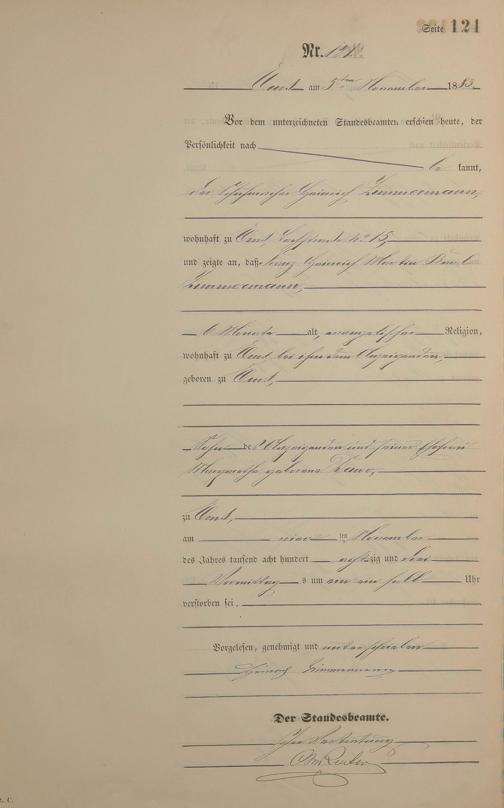 Seite 121
Nr.
Ems am 5ten November 1883.
Vor dem unterzeichneten Standesbeamten erschien heute, der
Persönlichkeit nach be kannt,
der Heinrich Zimmermann,
wohnhaft zu Ems, No 15,
und zeigte an, daß Heinrich
Zimmermann,
6 Monate alt, evangelischer Religion,
wohnhaft zu Ems bei dem Anzeigenden,
geboren zu Ems,
Sohn des Anzeigenden und seiner Ehefrau
geborene
zu Ems,
am vier ten November
des Jahres tausend acht hundert achtzig und drei
Vormittag s um ein ein halb Uhr
verstorben sei.
Vorgelesen, genehmigt und unterschrieben
Heinrich Zimmermann
Der Standesbeamte.
In Vertretung